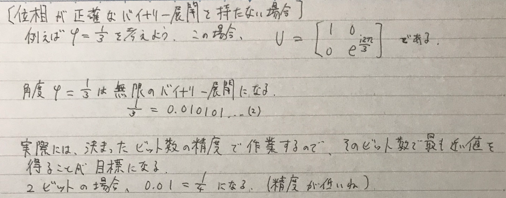 [位相が正確なバイナリー展開を持たない場合]
例えば φ = 1/3 を考えよう。この場合、 U = [1 0; 0 e^{i2π/3}] である.
角度 φ = 1/3 は 無限のバイナリー展開になる.
1/3 = 0.010101...(2)
実際には、決まったビット数の精度で作業するので、そのビット数で最も近い値を
得ることが目標になる.
2ビットの場合、0.01 = 1/4 になる. (精度が低いね)